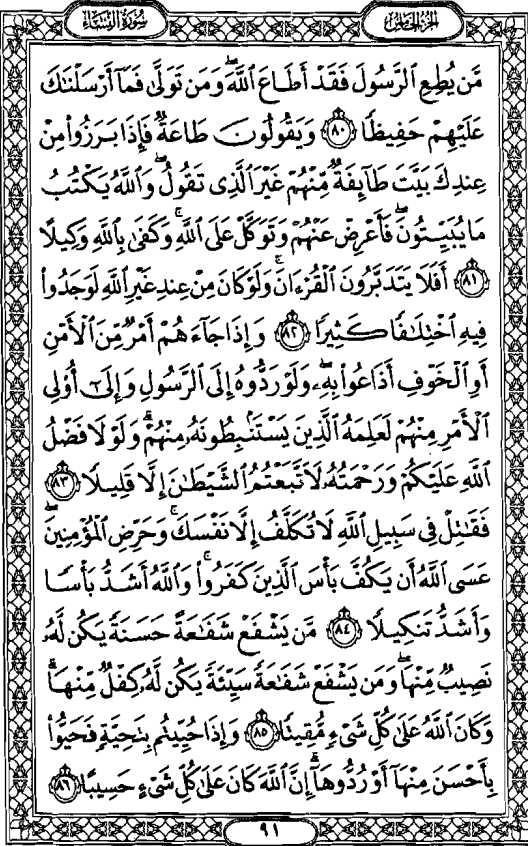 سُورَةُ النِّسَاءِ
الجُزءُ الخَامِسُ
مَّن يُطِعِ الرَّسُولَ فَقَدْ أَطَاعَ اللَّهَ ۖ وَمَن تَوَلَّىٰ فَمَآ أَرْسَلْنَٰكَ
عَلَيْهِمْ حَفِيظًا ٨٠ وَيَقُولُونَ طَاعَةٌ فَإِذَا بَرَزُواْ مِنْ
عِندِكَ بَيَّتَ طَآئِفَةٌ مِّنْهُمْ غَيْرَ الَّذِى تَقُولُ ۖ وَاللَّهُ يَكْتُبُ
مَا يُبَيِّتُونَ ۖ فَأَعْرِضْ عَنْهُمْ وَتَوَكَّلْ عَلَى اللَّهِ ۚ وَكَفَىٰ بِاللَّهِ وَكِيلًا
٨١ أَفَلَا يَتَدَبَّرُونَ الْقُرْءَانَ ۚ وَلَوْ كَانَ مِنْ عِندِ غَيْرِ اللَّهِ لَوَجَدُواْ
فِيهِ اخْتِلَٰفًا كَثِيرًا ٨٢ وَإِذَا جَآءَهُمْ أَمْرٌ مِّنَ الْأَمْنِ
أَوِ الْخَوْفِ أَذَاعُواْ بِهِۦ ۖ وَلَوْ رَدُّوهُ إِلَى الرَّسُولِ وَإِلَىٰٓ أُوْلِى
الْأَمْرِ مِنْهُمْ لَعَلِمَهُ الَّذِينَ يَسْتَنۢبِطُونَهُۥ مِنْهُمْ ۗ وَلَوْلَا فَضْلُ
اللَّهِ عَلَيْكُمْ وَرَحْمَتُهُۥ لَاتَّبَعْتُمُ الشَّيْطَٰنَ إِلَّا قَلِيلًا ٨٣
فَقَٰتِلْ فِى سَبِيلِ اللَّهِ لَا تُكَلَّفُ إِلَّا نَفْسَكَ ۚ وَحَرِّضِ الْمُؤْمِنِينَ ۖ
عَسَى اللَّهُ أَن يَكُفَّ بَأْسَ الَّذِينَ كَفَرُواْ ۚ وَاللَّهُ أَشَدُّ بَأْسًا
وَأَشَدُّ تَنكِيلًا ٨٤ مَّن يَشْفَعْ شَفَٰعَةً حَسَنَةً يَكُن لَّهُۥ
نَصِيبٌ مِّنْهَا ۖ وَمَن يَشْفَعْ شَفَٰعَةً سَيِّئَةً يَكُن لَّهُۥ كِفْلٌ مِّنْهَا ۗ
وَكَانَ اللَّهُ عَلَىٰ كُلِّ شَىْءٍ مُّقِيتًا ٨٥ وَإِذَا حُيِّيتُم بِتَحِيَّةٍ فَحَيُّواْ
بِأَحْسَنَ مِنْهَآ أَوْ رُدُّوهَآ ۗ إِنَّ اللَّهَ كَانَ عَلَىٰ كُلِّ شَىْءٍ حَسِيبًا ٨٦
٩١